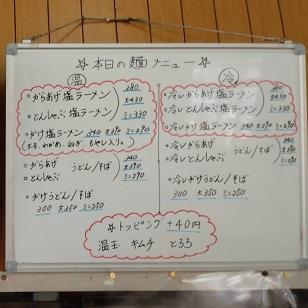 ☆本日の麺メニュー☆
温
○からあげ塩ラーメン 380
大430
○とんしゃぶ塩ラーメン ミニ330
○かけ塩ラーメン 340 大390 ミニ290
○からあげ うどん/そば
○とんしゃぶ ミニ290
○かけうどん/そば
300 大350 ミニ250
冷
○冷しからあげ塩ラーメン
大430
○冷しとんしゃぶ塩ラーメン ミニ330
塩ラーメン 340 大390 ミニ290
○冷しからあげ うどん/そば
○冷しとんしゃぶ ミニ290
○冷しかけうどん/そば
300 大350 ミニ250
☆トッピング +40円
温玉 キムチ とろろ